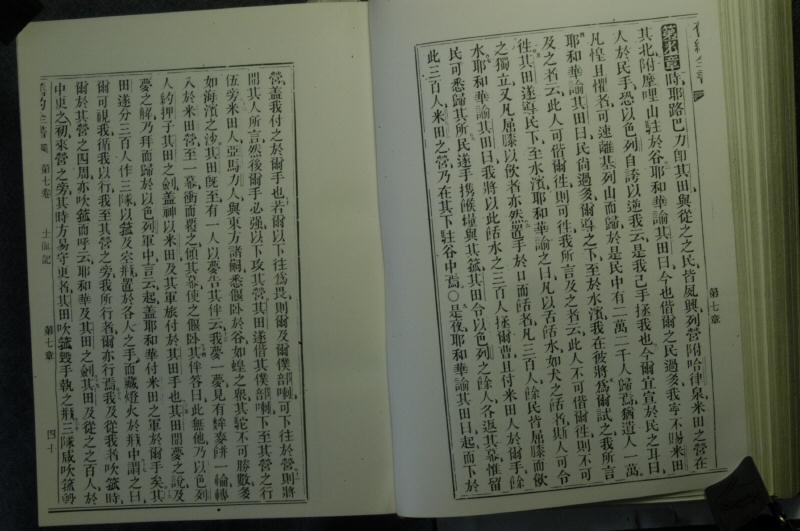 舊約全書
第七章
第七章時、耶路巴力卽其田與從之之民皆夙興列營附哈律泉、米田之營在
其北附摩哩山駐於谷、耶和華諭其田曰、今也偕爾之民過多、我寧不賜米田
人於民手、恐以色列自誇以逆我云、是我己手拯我也、今爾宜宣於民之耳曰、
凡惶且懼者、可速離基列山而歸、於是民中有二萬二千人歸焉、猶遺人一萬、
耶和華諭其田曰、民尚過多、爾導之下至於水濱、我在彼將爲爾試之、我所言
及之者云、此人可偕爾徃則可徃、我所言及之者云、此人不可偕爾徃則不可
徃、其田遂導民下至水濱、耶和華諭之曰、凡以舌餂水如犬之餂者、斯人可令
之獨立、又凡屈膝以飲者亦然、置手於口而餂者、凡三百人、餘民皆屈膝而飲
水、耶和華諭其田曰、我將以此餂水之三百人拯爾曹、且付米田人於爾手、餘
民可悉歸其所、民遂手携餱糧與其箛、其田令以色列之餘人各返其幕、惟留
此三百人、米田之營乃在其下駐谷中焉、○是夜耶和華諭其田曰、起而下於
營、蓋我付之於爾手也、若爾以下徃爲畏、則爾及爾僕部喇、可下徃於營、則將
聞其人所言、然後爾手必强、以下攻其營、其田遂偕其僕部喇下至其營之行
伍旁、米田人、亞馬力人、與東方諸嗣、悉偃卧於谷、如蝗之衆、其駝不可勝數、多
如海濱之沙、其田旣至、有一人以夢告其伴云、我夢一夢、見有麰麥餅一輪轉
入於米田營、至一幕、衝而覆之、傾其幕使之偃卧、其伴答曰、此無他、乃以色列
人約押子其田之劍、蓋神以米田及其軍旅付於其田手也、其田聞夢之說、及
夢之解、乃拜而歸於以色列軍中、言云、起、蓋耶和華付米田之軍於爾手矣、其
田遂分三百人作三隊、以箛及空瓶置於各人之手、而藏燈火於瓶中、謂之曰、
爾可視我、循我以行、我至其營之旁、我所行者、爾亦行焉、我及從我者吹箛時、
爾於其營之四周、亦吹箛而呼云、耶和華及其田之劍、其田及從之之百人、於
中更之初、來營之旁、其時方易守更者、其田吹箛毀手執之瓶、三隊咸吹箛
舊約全書 第七卷 士師記 第七章 四十